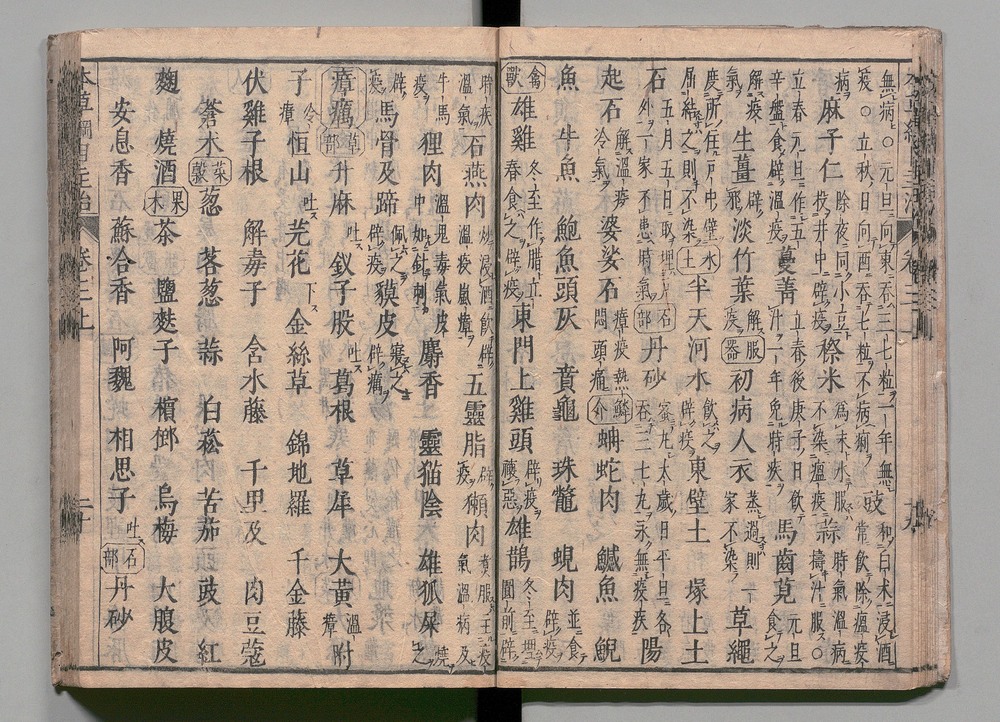 無病○元旦向東吞三七粒一年無
疫○立秋日向西吞七粒不病痢
豉
和白朮浸酒
常飲除瘟疫
病
麻子仁
除夜同小豆
投井中辟疫
穄米
爲末水服
不染瘟疫
蒜
時氣溫病
擣汁服○
立春元旦作五
辛盤食辟溫疫
蔓菁
立春後庚子日飲
汁一年免時疾
馬齒莧
元旦
食之
解疫
氣
生薑
辟
邪
淡竹葉
解
疫
服器
初病人衣
蒸過則一
家不染
草繩
度所住戶中壁
屈結之則不染
水土
半天河水
飲之
辟疫
東壁土 塚上土
石
五月五日取埋戶
外一家不患時氣
石部
丹砂
蜜丸太歲日平旦各
吞三七九永無疫疾
陽
起石
解溫疫
冷氣
婆娑石
瘴疫熱
悶頭痛
鱗介
蚺蛇肉 鱵魚 鯢
魚 牛魚 鮑魚頭灰 賁龜 珠鼈 蜆肉
並食
辟疫
禽獸
雄雞
冬至作腊立
春食之辟疫
東門上雞頭
辟疫
禳惡
雄鵲
冬至埋
圊前辟
時疾
溫氣
石燕肉
炒浸酒飲辟
溫疫嵐瘴
五靈脂
辟
疫
獺肉
煮服主疫
氣溫病及
牛馬
疫
狸肉
溫鬼毒氣皮
中如針刺
麝香 靈猫陰 雄狐屎
燒
之
辟
疫
馬骨及蹄
佩之
辟疫
貘皮
寢之
辟癘
瘴癘
草部
升麻
吐
釵子股
吐
葛根 草犀 大黃
溫
瘴
附
子
冷
瘴
恒山
吐
芫花
下
金絲草 錦地羅 千金藤
伏雞子根 解毒子 含水藤 千里及 肉豆蔻
蒼朮
菜穀
葱 茖葱 蒜 白菘 苦茄頭豉 紅
麴 燒酒
果木
茶 鹽麩子 檳榔 烏梅 大腹皮
安息香 蘇合香 阿魏 相思子
吐
石部
丹砂